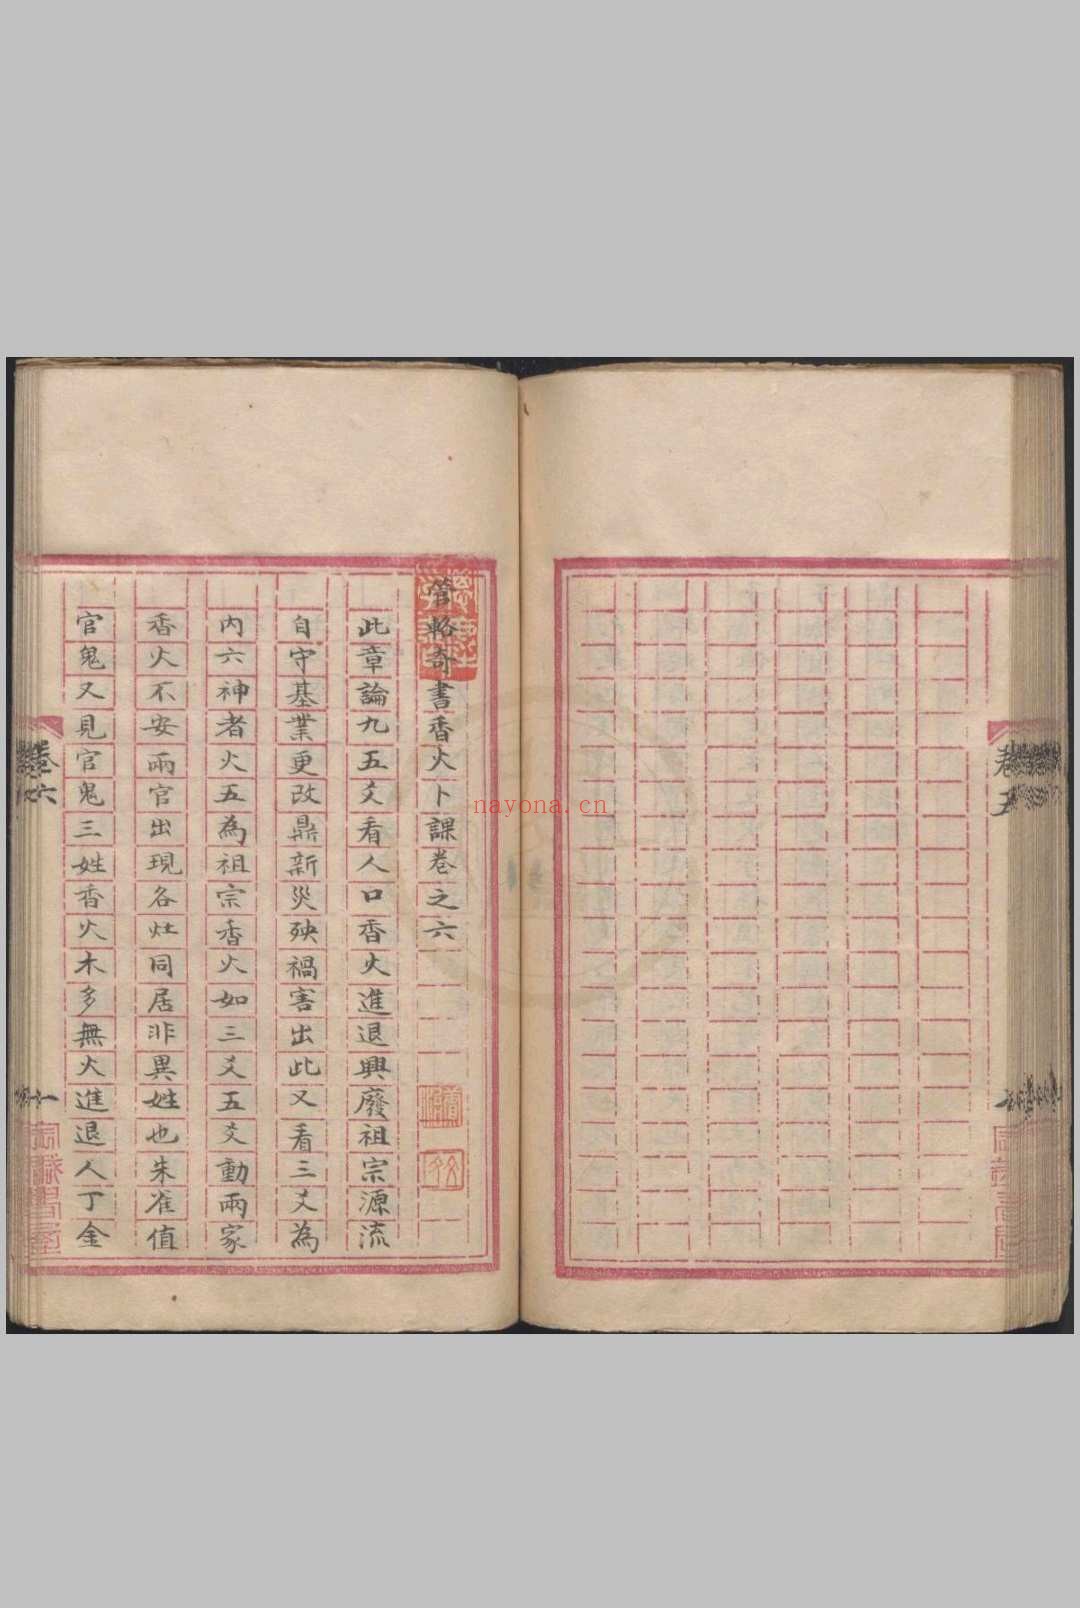 卷五
管輅奇書香火卜課卷之六
此章論九五爻看人口香火進退興廢祖宗源流
自守基業更改鼎新災殃禍害出此又看三爻為
內六神者火五為祖宗香火如三爻五爻動兩家
香火不安兩官出現各灶同居非異姓也朱雀值
官鬼又見官鬼三姓香火木多無火進退人丁金
卷六
一
nayona.cn